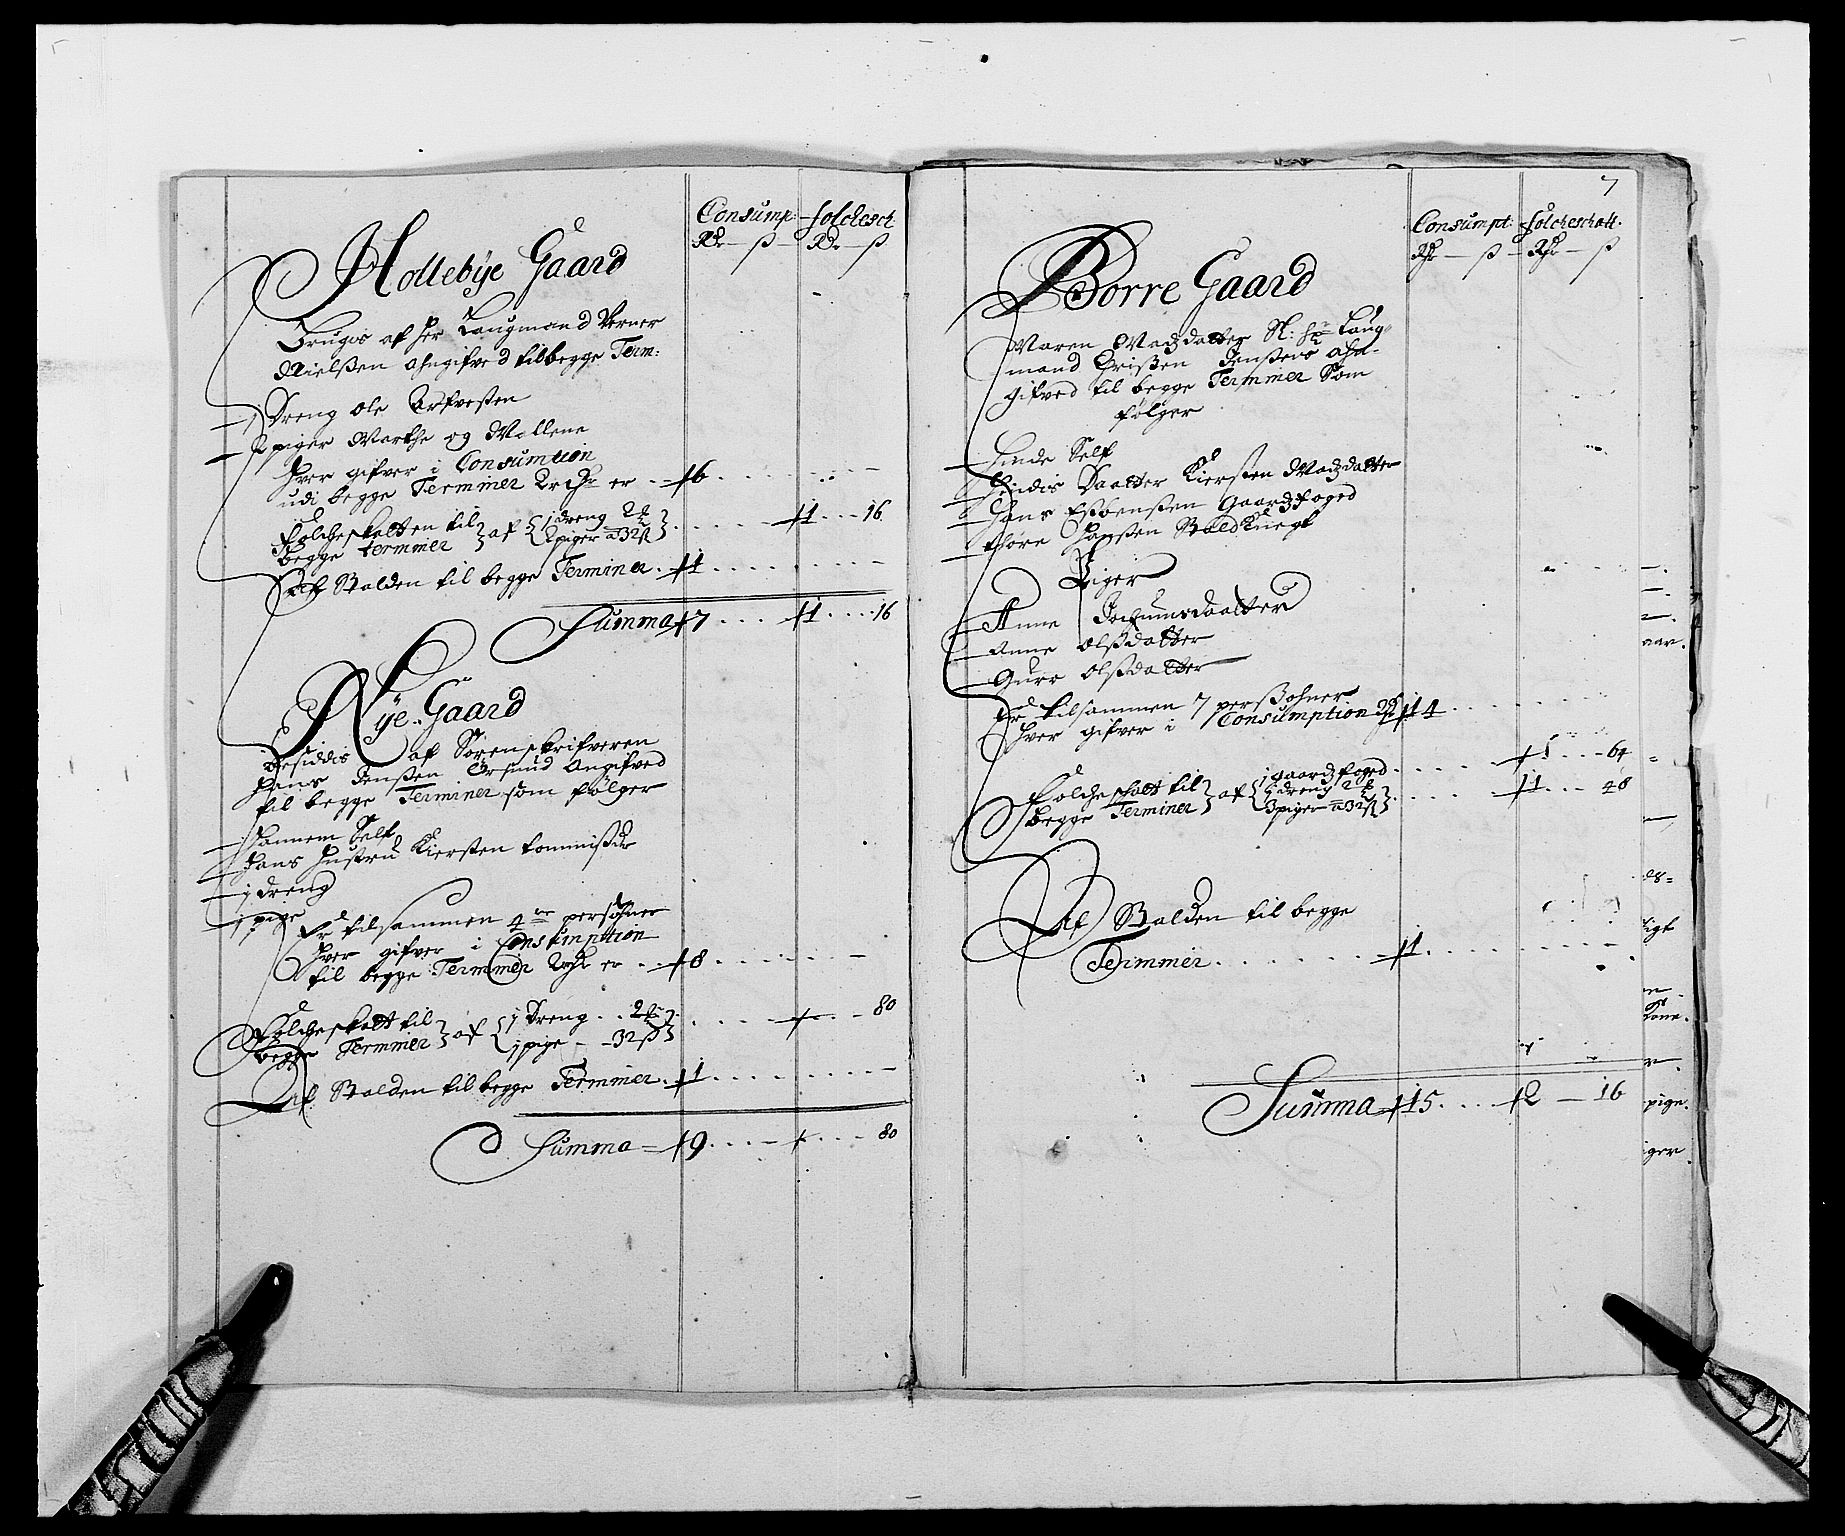 Consump: folchesch
Rdr — ß — Rdr — ß
Hollebÿe Gaard
Brugis af her Laugmand Verner
Nielßen Angifved til begge Term:
1 Dreng Ole
2 piger Marthe og
hver gifver i Consumtion
udi begge Terminer 2 rdr er 6
folcheskatten til begge terminer af 1 dreng 2 2 piger a 32 ß 1 16
Af Balden til begge Terminer 1
Summa 7 1 16
Nÿe Gaard
Besiddis af Sorenskrifveren
Hans Jenßen Ørsund Angifved
til begge Terminer som følger
hannem Self
hans hustru Kiersten
1 dreng
1 pige
Er tilsammen 4re persohner
hver gifver i Consumption
til begge Terminer 2 rdr er 8
Folche skatt til begge Terminer af 1 dreng 2 1 pige 32 ß 80
Af Balden til begge Terminer 1
Summa 9 80
7
Consumpt: folcheschatt:
Rdr — ß — Rdr — ß
Borre Gaard
Maren Madzdatter Sl: Hr Laug-
mand Christen Jensens Ahn-
gifved til begge Terminer Som
følger
hinde Self
hindis Daatter Kiersten Madzdatter
Hans Esbensten Gaardzfoged
Thore Hanßen Staldknegt
Piger
Anne Jochumsdaatter
Anne Olßdatter
Guro Olßdatter
Er tilsammen 7 perßohner
hver gifver i Consumption 2 rdr 14
Folche skatt til begge Terminer af 1 gaardzfoged 1 64
1 dreng 2 3 piger a 32 ß 1 48
Af Balden til begge
Terminer 1
Summa 15 2 16